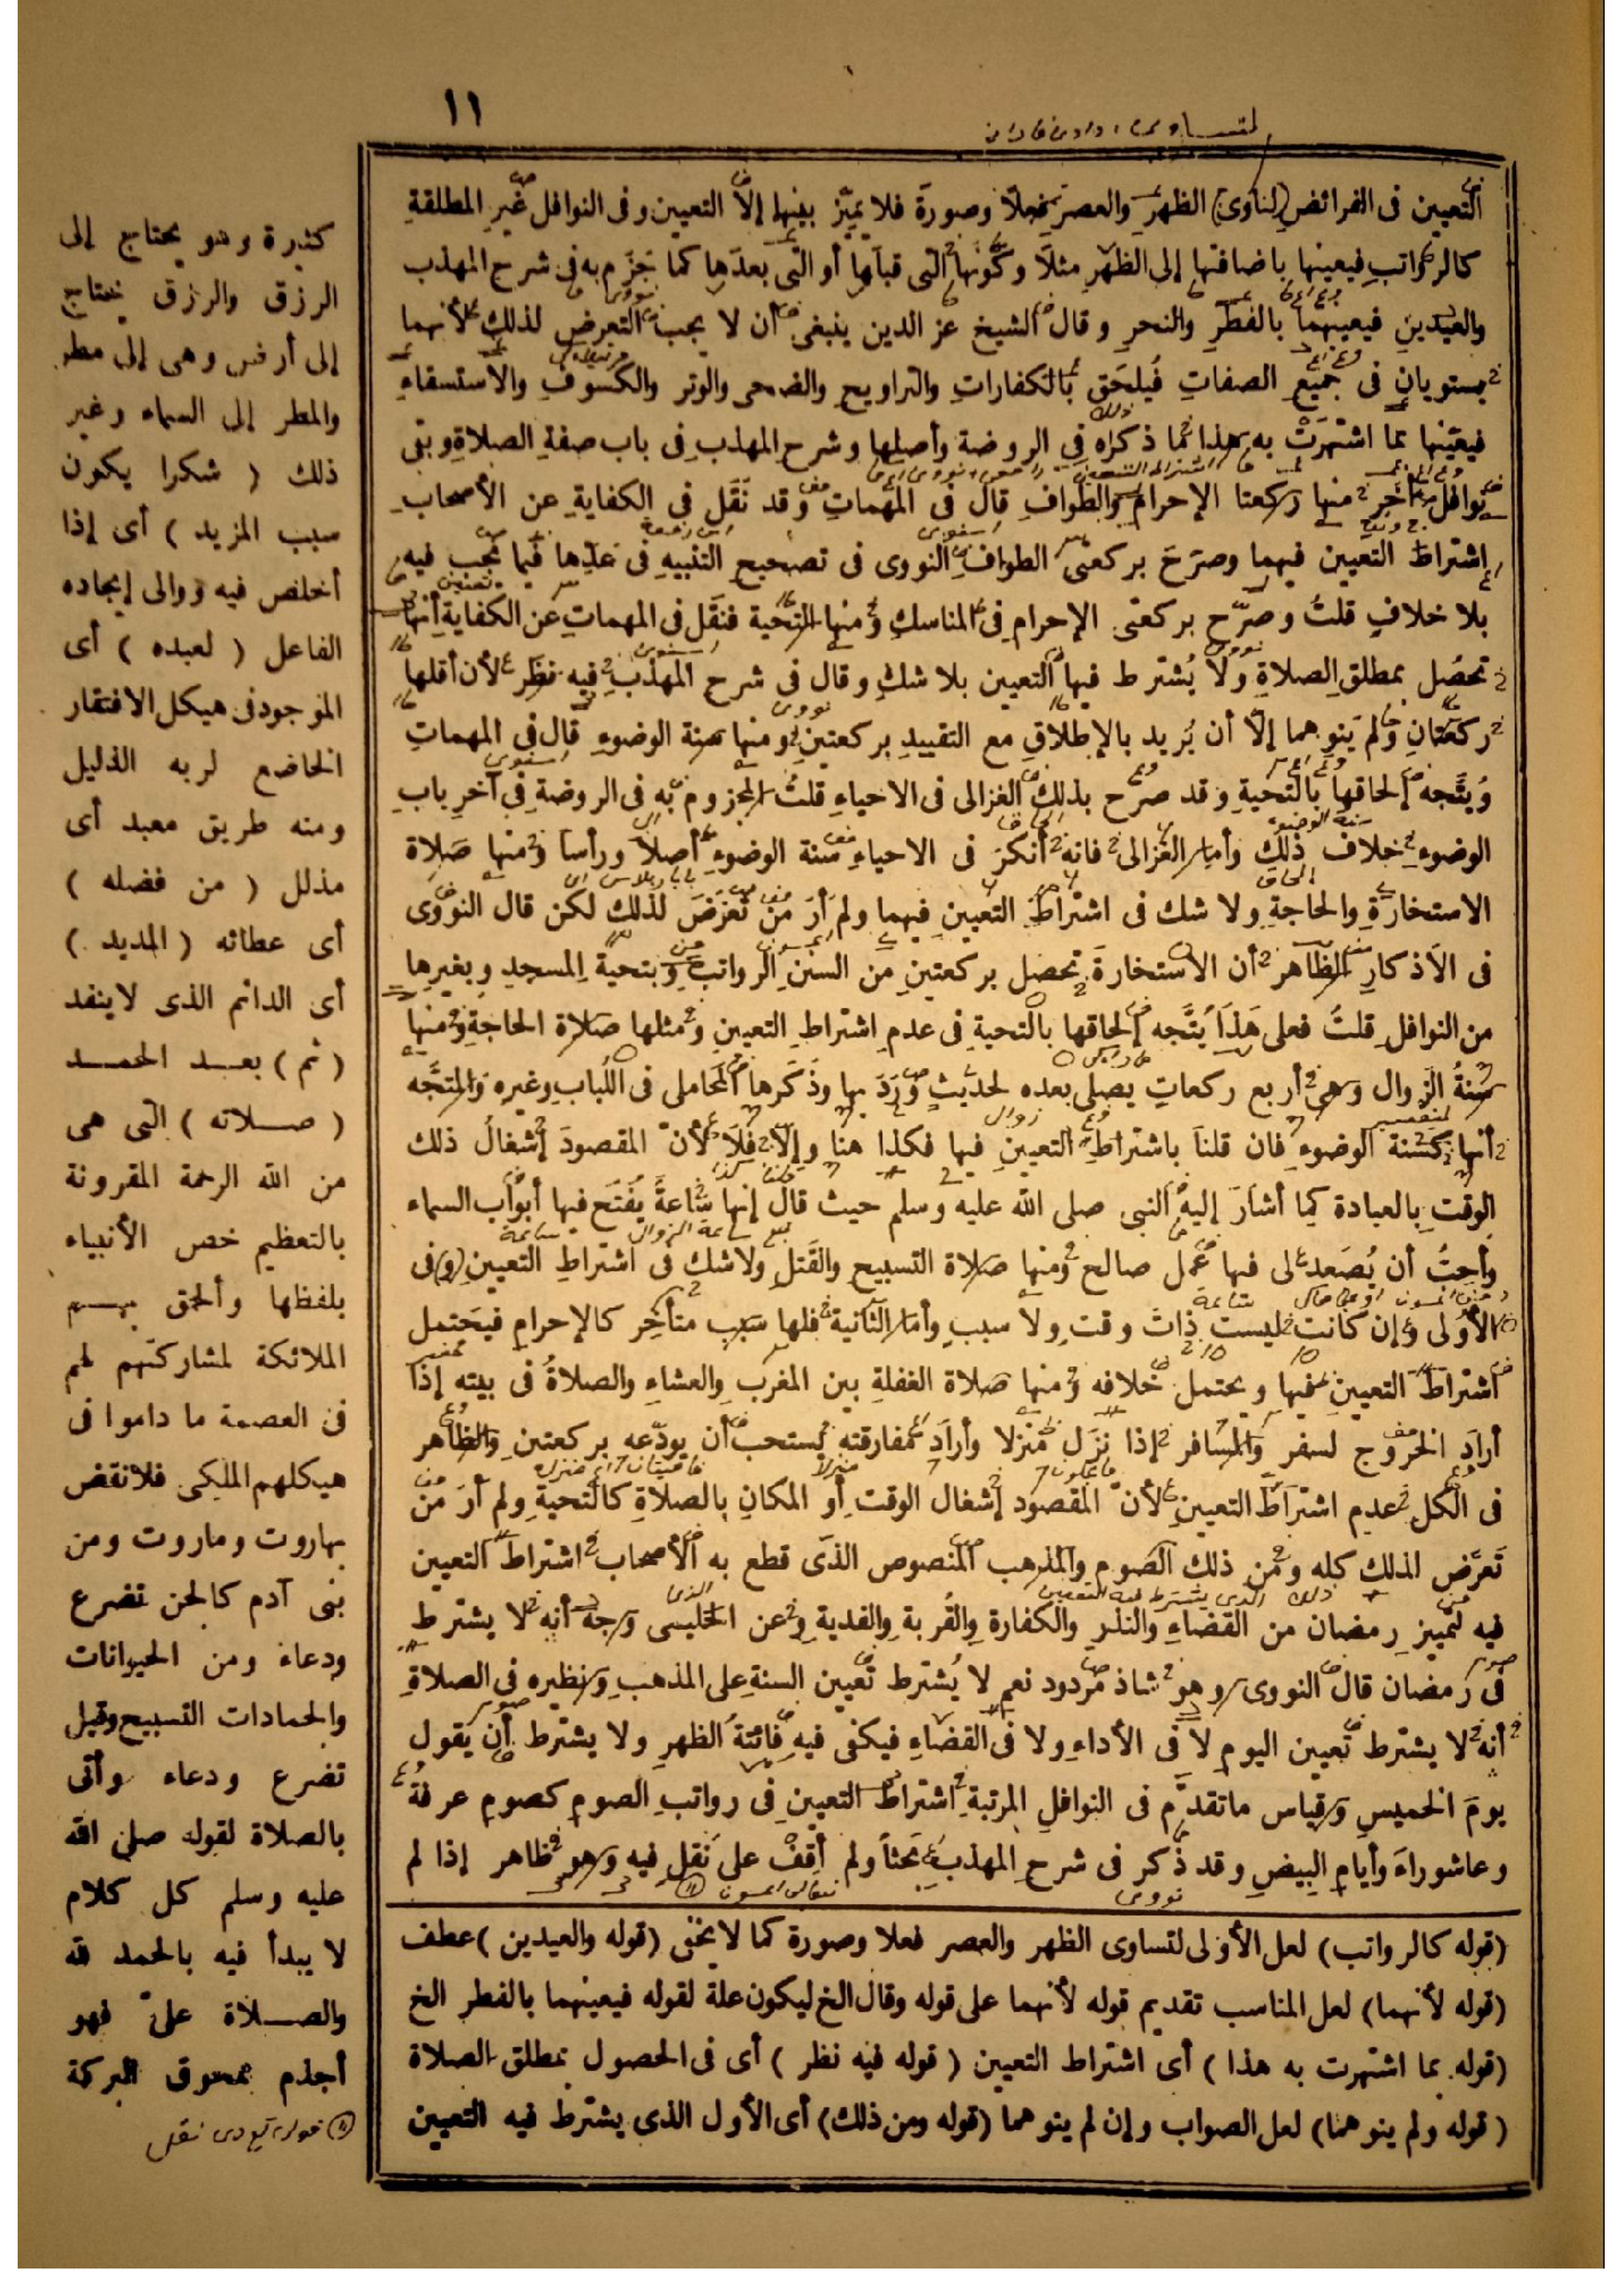 ١١
التعيين فى الفرائض لتساوى الظهر والعصر فعلا وصورة فلا يميز بينهما إلا التعيين وفى النوافل غير المطلقة
كالرواتب فيعينها باضافتها إلى الظهر مثلا وكونها التى قبلها أو التى بعدها كما جزم به فى شرح المهذب
والعيدين فيعينهما بالفطر والنحر وقال الشيخ عز الدين ينبغى أن لا يجب التعرض لذلك لأنهما
يستويان فى جميع الصفات فيلحق بالكفارات والتراويح والضحى والوتر والكسوف والاستسقاء
فيعينها بما اشتهرت به هذا ما ذكراه فى الروضة وأصلها وشرح المهذب فى باب صفة الصلاة وبقى
نوافل أخر منها ركعتا الإحرام والطواف قال فى المهمات وقد نقل فى الكفاية عن الأصحاب
اشتراط التعيين فيهما وصرح بركعتى الطواف النووى فى تصحيح التنبيه فى عدها فيما يجب فيه
بلا خلاف قلت وصرح بركعتى الإحرام فى المناسك ومنها التحية فنقل فى المهمات عن الكفاية أنها
تحصل بمطلق الصلاة ولا يشترط فيها التعيين بلا شك وقال فى شرح المهذب فيه نظر لأن أقلها
ركعتان ولم ينوهما إلا أن يريد بالإطلاق مع التقييد بركعتين ومنها سنة الوضوء قال فى المهمات
ويتجه إلحاقها بالتحية وقد صرح بذلك الغزالى فى الاحياء قلت المجزوم به فى الروضة فى آخر باب
الوضوء خلاف ذلك وأما الغزالى فانه أنكر فى الاحياء سنة الوضوء أصلا ورأسا ومنها صلاة
الاستخارة والحاجة ولا شك فى اشتراط التعيين فيهما ولم أر من تعرض لذلك لكن قال النووى
فى الأذكار الظاهر أن الاستخارة تحصل بركعتين من السنن الرواتب وبتحية المسجد وبغيرها
من النوافل قلت فعلى هذا يتجه إلحاقها بالتحية فى عدم اشتراط التعيين ومثلها صلاة الحاجة ومنها
سنة الزوال وهى أربع ركعات يصلى بعده لحديث ورد بها وذكرها المحاملى فى اللباب وغيره والمتجه
أنها كسنة الوضوء فان قلنا باشتراط التعيين فيها فكذا هنا وإلا فلا لأن المقصود إشغال ذلك
الوقت بالعبادة كما أشار إليه النبى صلى الله عليه وسلم حيث قال إنها ساعة يفتح فيها أبواب السماء
وأحب أن يصعد لى فيها عمل صالح ومنها صلاة التسبيح والقتل ولا شك فى اشتراط التعيين (و) فى
الأولى وإن كانت ليست ذات وقت ولا سبب وأما الثانية فلها سبب متأخر كالإحرام فيحتمل
اشتراط التعيين فيها ويحتمل خلافه ومنها صلاة الغفلة بين المغرب والعشاء والصلاة فى بيته إذا
أراد الخروج لسفر والمسافر إذا نزل منزلا وأراد مفارقته يستحب أن يودعه بركعتين والظاهر
فى الكل عدم اشتراط التعيين لأن المقصود إشغال الوقت أو المكان بالصلاة كالتحية ولم أر من
تعرض لذلك كله ومن ذلك الصوم والمذهب المنصوص الذى قطع به الأصحاب اشتراط التعيين
فيه لتمييز رمضان من القضاء والنذر والكفارة والقربة والفدية وعن الحليمى وجه أنه لا يشترط
فى رمضان قال النووى وهو شاذ مردود نعم لا يشترط تعيين السنة على المذهب ونظيره فى الصلاة
أنه لا يشترط تعيين اليوم لا فى الأداء ولا فى القضاء فيكفى فيه فائتة الظهر ولا يشترط أن يقول
يوم الخميس وقياس ما تقدم فى النوافل المرتبة اشتراط التعيين فى رواتب الصوم كصوم عرفة
وعاشوراء وأيام البيض وقد ذكر فى شرح المهذب بحثا ولم أقف على نقل فيه وهو ظاهر إذا لم
(قوله كالرواتب) لعل الأولى لتساوى الظهر والعصر فعلا وصورة كما لا يخفى (قوله والعيدين) عطف
(قوله لأنهما) لعل المناسب تقديم قوله لأنهما على قوله وقال الخ ليكون علة لقوله فيعينهما بالفطر الخ
(قوله بما اشتهرت به هذا) أى اشتراط التعيين (قوله فيه نظر) أى فى الحصول بمطلق الصلاة
(قوله ولم ينوهما) لعل الصواب وإن لم ينوهما (قوله ومن ذلك) أى الأول الذى يشترط فيه التعيين
كثيرة وهو يحتاج إلى
الرزق والرزق يحتاج
إلى أرض وهى إلى مطر
والمطر إلى السماء وغير
ذلك ( شكرا يكون
سبب المزيد ) أى إذا
أخلص فيه ووالى إيجاده
الفاعل ( لعبده ) أى
الموجود فى هيكل الافتقار
الخاضع لربه الذليل
ومنه طريق معبد أى
مذلل ( من فضله )
أى عطائه ( المديد )
أى الدائم الذى لا ينفد
( ثم ) بعد الحمد
( صلاته ) التى هى
من الله الرحمة المقرونة
بالتعظيم خص الأنبياء
بلفظها وألحق بهم
الملائكة لمشاركتهم لهم
فى العصمة ما داموا فى
هيكلهم الملكى فلا نقض
بهاروت وماروت ومن
بنى آدم كالجن تضرع
ودعاء ومن الحيوانات
والجمادات التسبيح وقيل
تضرع ودعاء وأتى
بالصلاة لقوله صلى الله
عليه وسلم كل كلام
لا يبدأ فيه بالحمد لله
والصلاة علىّ فهو
أجذم ممحوق البركة